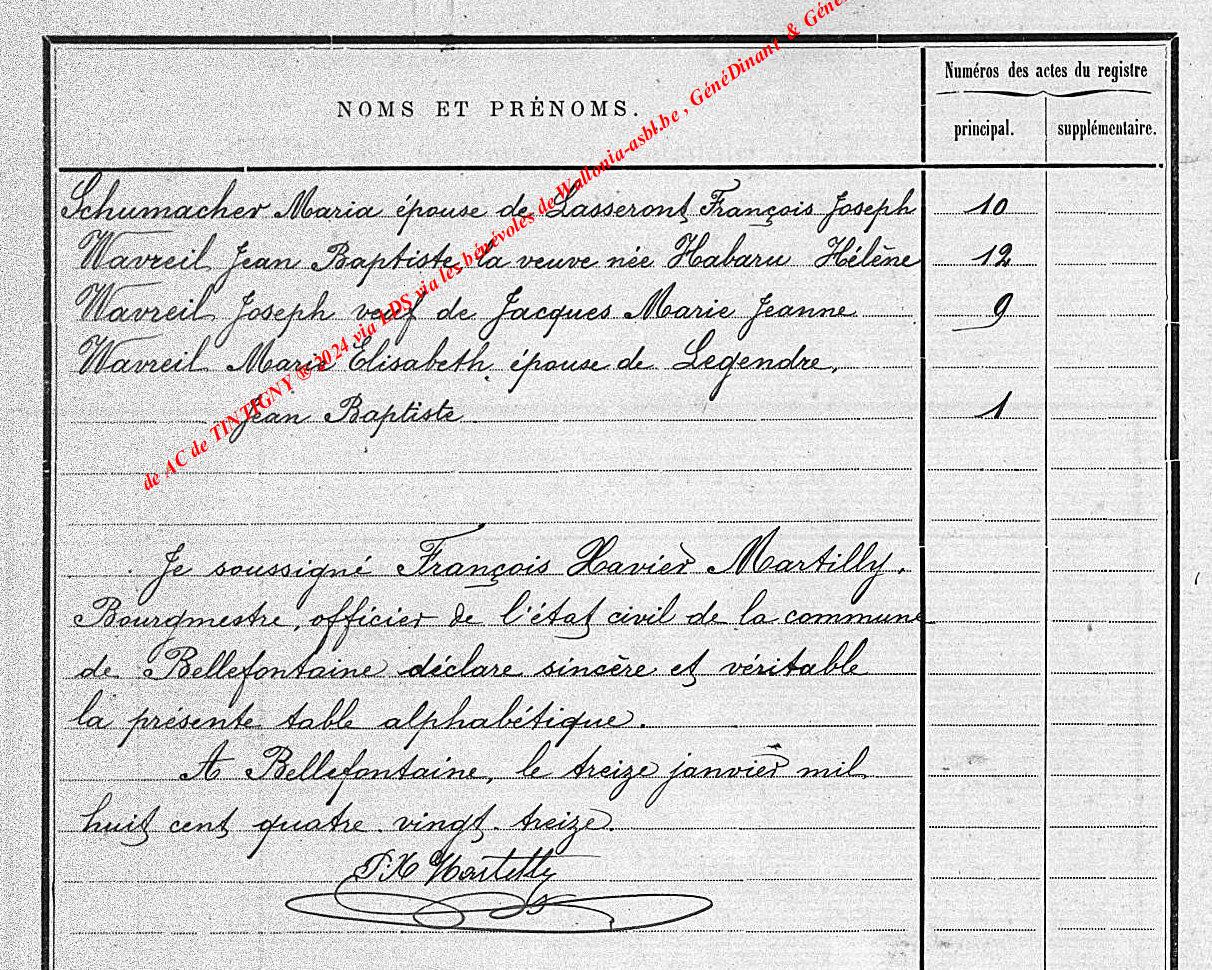 Numéros des actes du registre
NOMS ET PRÉNOMS.
principal. supplémentaire.
Schumacher Maria épouse de Lasseront François Joseph 10
Wavreil Jean Baptiste la veuve née Habaru Hélène 12
Wavreil Joseph veuf de Jacques Marie Jeanne 9
Wavreil Marie Elisabeth, épouse de Legendre,
Jean Baptiste 1
Je soussigné François Xavier Martilly,
Bourgmestre, officier de l'état civil de la commune
de Bellefontaine déclare sincère et véritable
la présente table alphabétique.
A Bellefontaine, le treize janvier mil
huit cent quatre vingt treize.
de AC de TINTIGNY ® 2024 via LDS via les bénévoles de Wallonia-asbl.be , GénéDinant & Géné